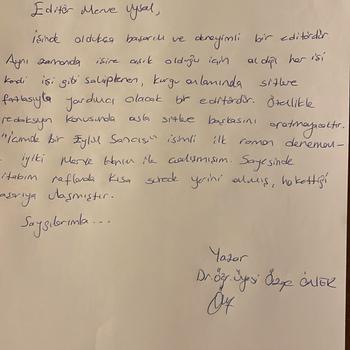 Editör Merve Uysal,
işinde oldukça başarılı ve deneyimli bir editördür
Aynı zamanda işine aşık olduğu için aldığı her işi
kendi işi gibi sahiplenen, kurgu anlamında sizlere
fazlasıyla yardımcı olacak bir editördür. Özellikle
redaksiyon konusunda asla sizlere başkasını aratmayacaktır.
"İçimde bir Eylül Sancısı" isimli ilk roman denemem-
İyiki Merve Hanım ile çalışmışım. Sayesinde
itabım raflarda kısa sürede yerini almış, hakettiği
aşarıya ulaşmıştır.
Saygılarımla...
Yazar
Dr. Öğr. Üyesi Özge ÖNLER